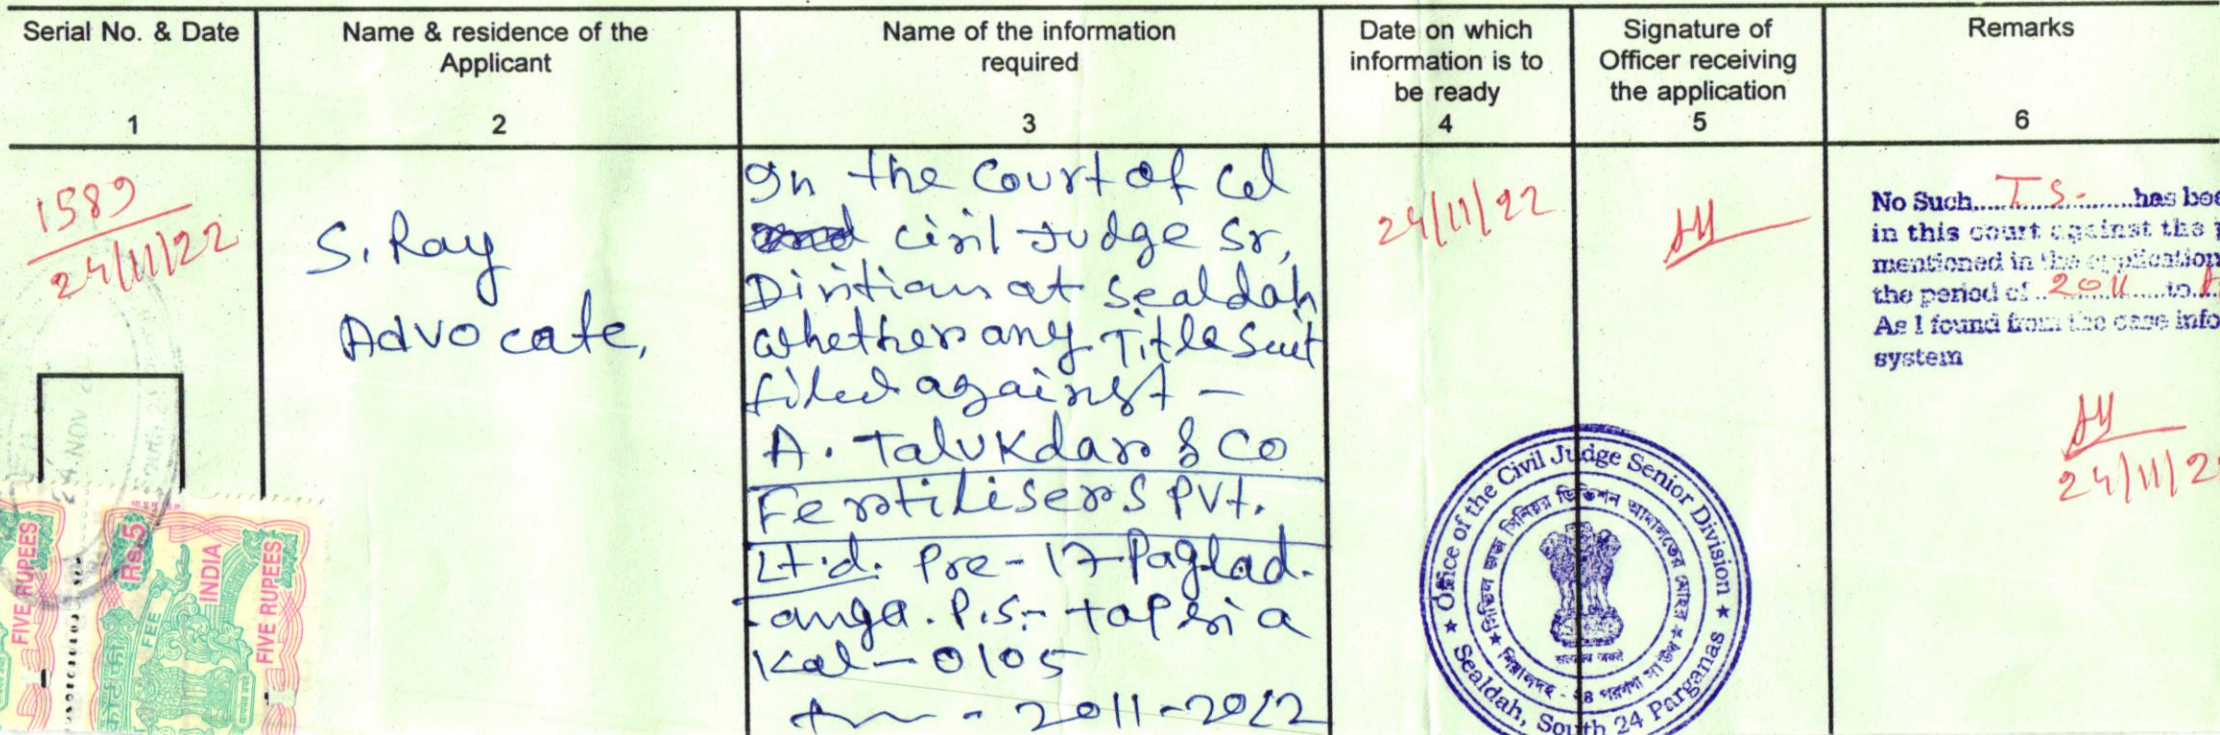 Serial No. & Date
1
Name & residence of the
Applicant
2
Name of the information
required
3
Date on which
information is to
be ready
4
Signature of
Officer receiving
the application
5
Remarks
6
1589
24/11/22
S. Ray
Advocate,
In the Court of
Civil Judge Sr,
Divition at Sealdah
whether any Title Suit
filed against -
A. Talukdar & Co
Fertilisers Pvt.
Ltd. Pre - 17 Paglad-
anga. P.S:- tapsia
Kal - 0105
- 2011-2022
24/11/22
No Such.....T.S-.....has bee
in this court against the
mentioned in the application
the period of ..2011.....to..
As I found from the case info
system
24/11/2
Office of the Civil Judge Senior Division
Sealdah, South 24 Parganas
সিভিল জজ সিনিয়র ডিভিশন আদালতের মোহর
শিয়ালদহ - ২৪ পরগণা
सत्यमेव जयते
24 NOV
FIVE RUPEES
Rs.5
INDIA
FIVE RUPEES
कोर्ट फी
FEE